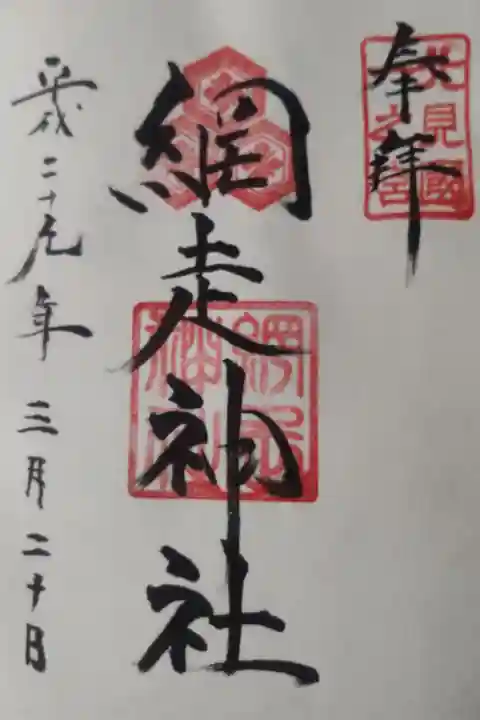 奉拝
北見國
網走神社
網走
神社
平成二十九年三月二十日